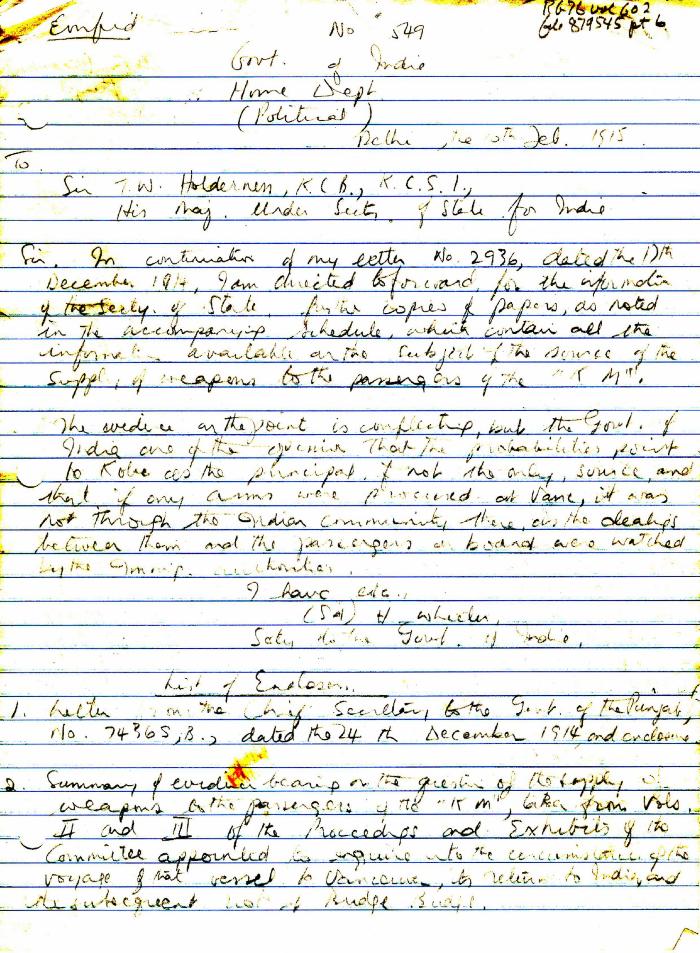 Confid
No 549
RG76 vol 602
file 879545 pt 6
Govt. of India
Home Dept.
(Political)
Delhi, the 10th Feb. 1915.
To
Sir T.W. Holderness, K.C.B., K.C.S.I.,
His Maj. Under Secty. of State for India
Sir. In continuation of my letter No. 2936, dated the 17th
December 1914, I am directed to forward, for the information
of the Secty. of State, further copies of papers, as noted
in the accompanying schedule, which contain all the
information available on the subject of the source of the
supply of weapons to the passengers of the "K M".
The evidence on the point is conflicting, but the Govt. of
India are of the opinion that the probabilities point
to Kobe as the principal, if not the only, source, and
that if any arms were procured at Vanc, it was
not through the Indian community there, as the dealings
between them and the passengers on board were watched
by the Immig. authorities.
I have etc.,
(Sd) H wheeler,
Secty. to the Govt. of India.
List of Enclosures.
1. Letter from the Chief Secretary to the Govt. of the Punjab,
No. 7436 S,B., dated the 24th December 1914, and enclosure
2. Summary of evidence bearing on the question of the supply of
weapons to the passengers of the "K M", taken from Vols.
II and III of the Proceedings and Exhibits of the
Committee appointed to enquire into the circumstances of the
voyage of that vessel to Vancouver, its return to India, and
the subsequent riot of Budge Budge.